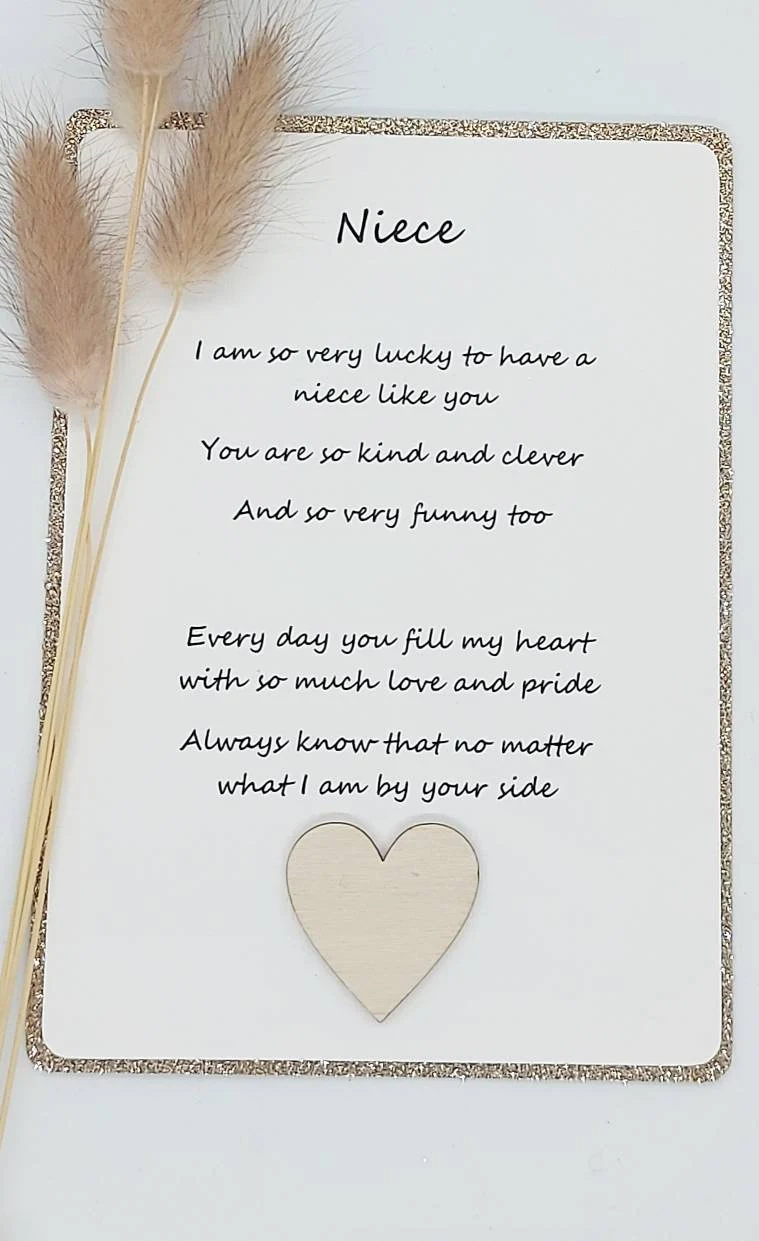 Niece
I am so very lucky to have a
niece like you
You are so kind and clever
And so very funny too
Every day you fill my heart
with so much love and pride
Always know that no matter
what I am by your side